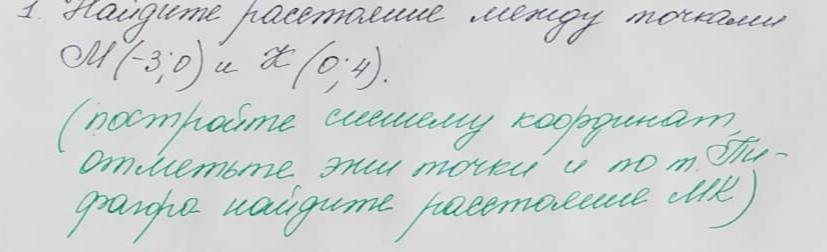 1. Найдите расстояние между точками
М(-3;0) и К(0;4).
(постройте систему координат,
отметьте эти точки и по т. Пи-
фагора найдите расстояние МК)